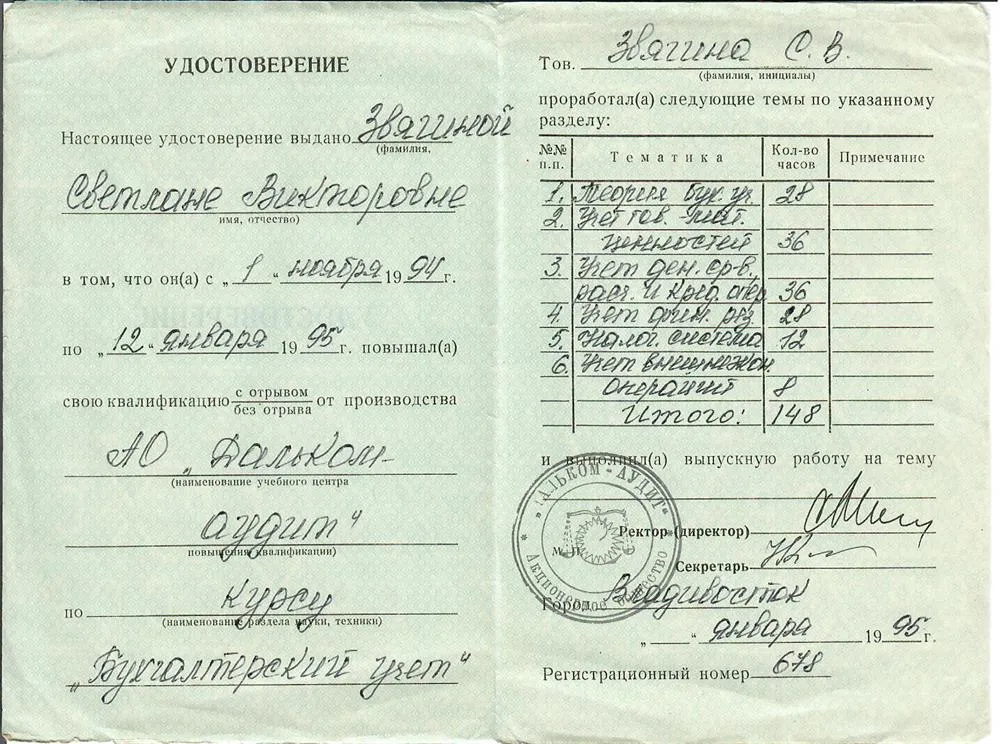 УДОСТОВЕРЕНИЕ
Настоящее удостоверение выдано Звягиной
(фамилия,
Светлане Викторовне
имя, отчество)
в том, что он(а) с „ 1 “ ноября 1994 г.
по „12“ января 1995 г. повышал(а)
свою квалификацию с отрывом
без отрыва от производства
АО „Дальком-
(наименование учебного центра
аудит“
повышения квалификации)
по курсу
(наименование раздела науки, техники)
„Бухгалтерский учет“
Тов. Звягина С. В.
(фамилия, инициалы)
проработал(а) следующие темы по указанному
разделу:
№№ п.п. Тематика Кол-во часов Примечание
1. Теория бух. уч. 28
2. Учет тов. - мат.
ценностей 36
3. Учет ден. ср-в,
расч. и кред. опер. 36
4. Учет фин. рез. 28
5. Налог. система 12
6. Учет внешнеэкон.
операций 8
Итого: 148
и выполнил(а) выпускную работу на тему
"ДАЛЬКОМ-АУДИТ"
Акционерное общество
М. П.
Ректор (директор)
Секретарь
Город Владивосток
„ “ января 1995 г.
Регистрационный номер 678